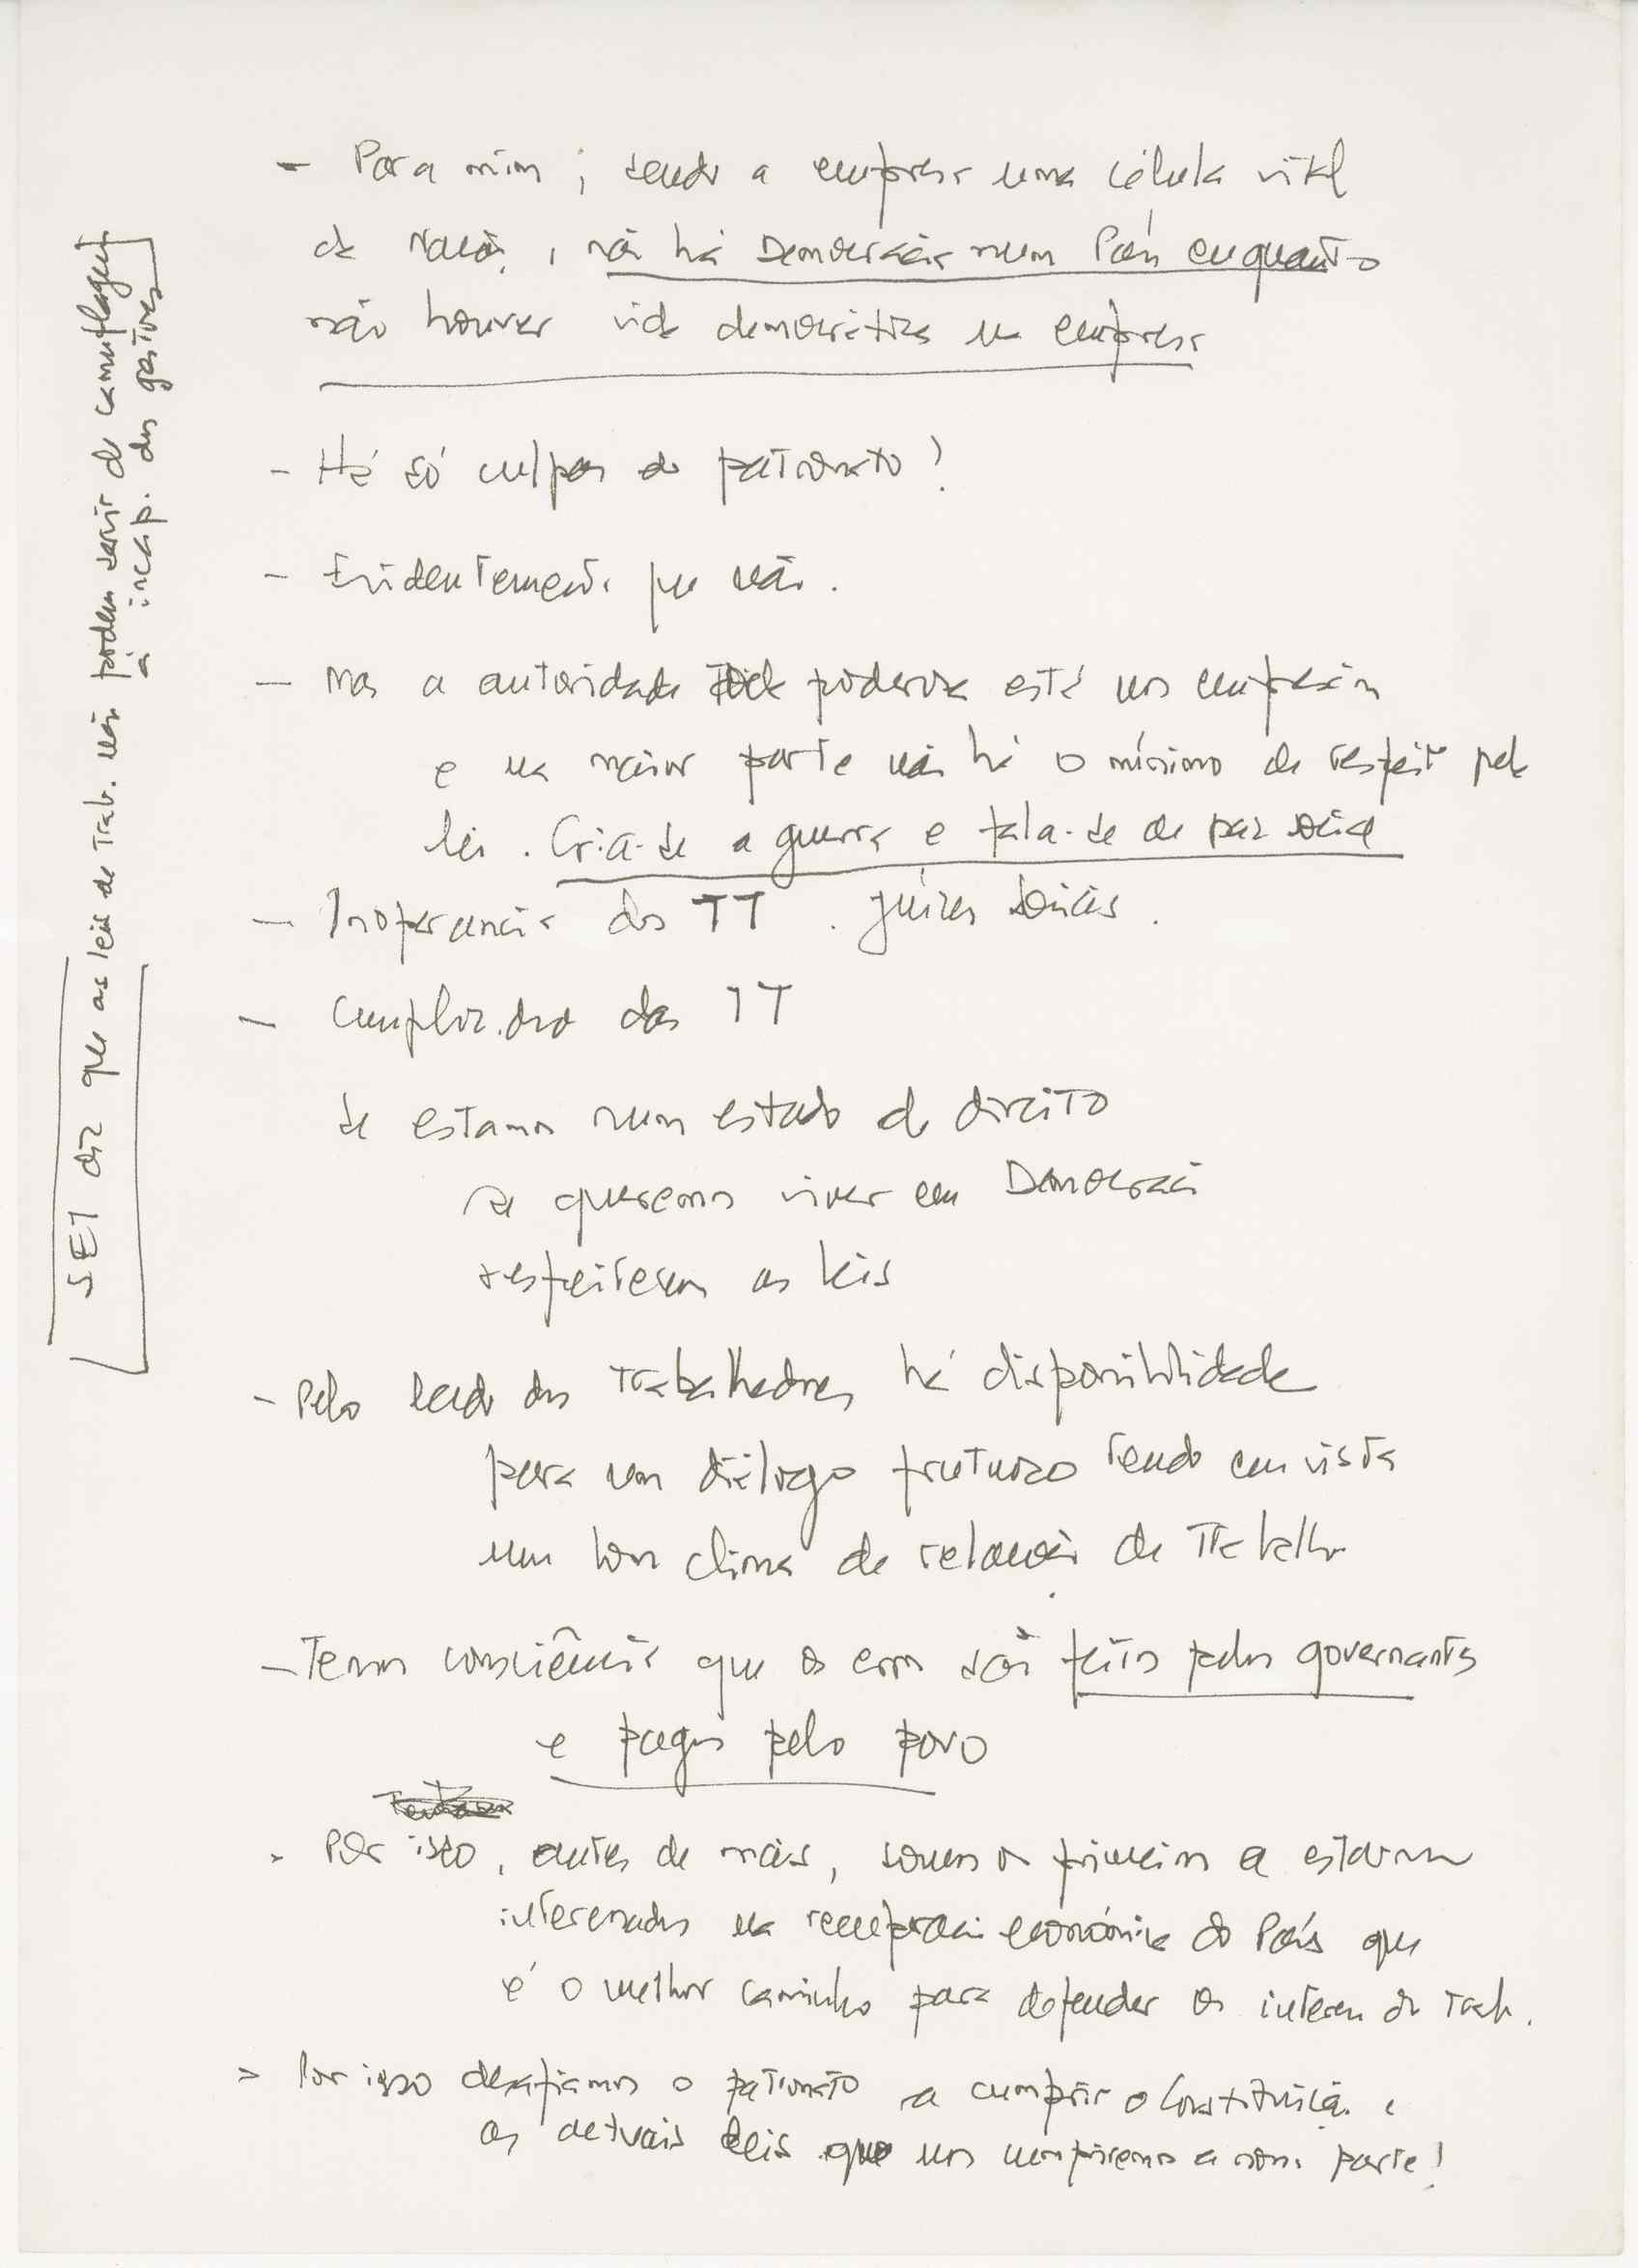 - Para mim, sendo a empresa uma célula vital
da Nação, não há Democracia num País enquanto
não houver vida democrática na empresa
- Há só culpas do patronato?
- Evidentemente que não.
- Mas a autoridade poderosa está nos empresários
e na maior parte não há o mínimo de respeito pela
lei. Cria-se a guerra e fala-se de paz social
- Inoperancia dos TT. Juízes Sociais.
- dos TT
Se estamos num estado de direito
se queremos viver em Democracia
respeitem as leis
- Pelo lado dos Trabalhadores há disponibilidade
para um diálogo frutuoso tendo em vista
um bom clima de relações de Trabalho
- Temos consciência que os erros são feitos pelos governantes
e pagos pelo povo
- Por isso, antes de mais, somos os primeiros a estarmos
interessados na recuperação económica do País que
é o melhor caminho para defender os interesses dos Trab.
> Por isso desafiamos o patronato a cumprir a Constituição e
as actuais leis que nós cumpriremos a nossa parte!
SET diz que as leis de Trab. não podem servir de camuflagem
à incap. dos gestores